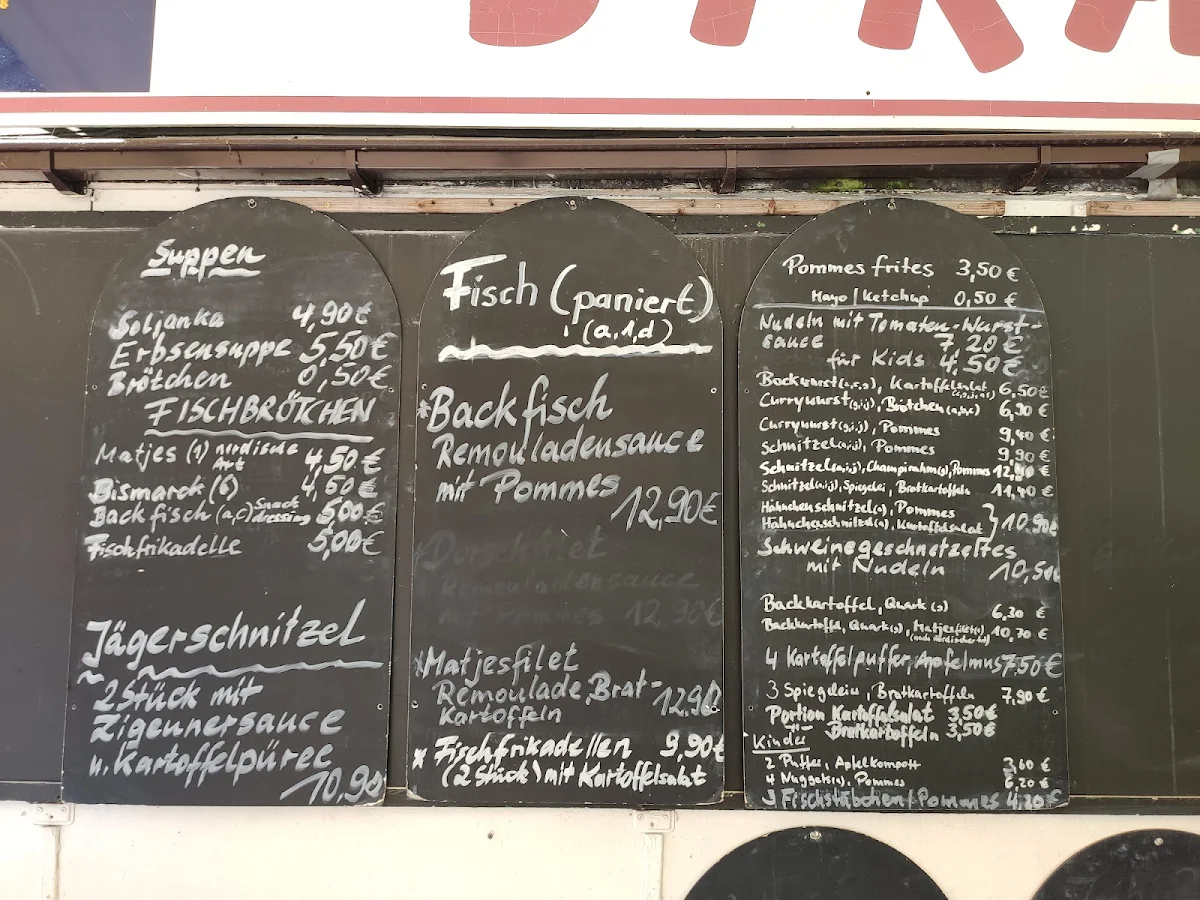 Suppen
Soljanka 4,90€
Erbsensuppe 5,50€
Brötchen 0,50€
FISCHBRÖTCHEN
Matjes (1) nordische Art 4,50€
Bismarck (6) 4,50€
Backfisch (a,c) Snack dressing 5,00€
Fischfrikadelle 5,00€
Jägerschnitzel
2 Stück mit
Zigeunersauce
u. Kartoffelpüree
10,90
Fisch (paniert)
(a,1,d)
*Backfisch
Remouladensauce
mit Pommes
12,90€
Dorschfilet
Remouladensauce
mit Pommes 12,90€
*Matjesfilet
Remoulade, Brat-
Kartoffeln 12,90
* Fischfrikadellen 9,90€
(2 Stück) mit Kartoffelsalat
Pommes frites 3,50 €
Mayo/Ketchup 0,50 €
Nudeln mit Tomaten-Wurst-
sauce 7,20 €
für Kids 4,50€
Bockwurst, Kartoffelsalat 6,50€
Currywurst (g,i,j), Brötchen (a,b,c) 6,90 €
Currywurst (g,i,j), Pommes 9,40 €
Schnitzel (a,i,j), Pommes 9,90 €
Schnitzel (a,i,j), Champignons, Pommes 12,90 €
Schnitzel (a,i,j), Spiegelei, Bratkartoffeln 11,40 €
Hähnchenschnitzel, Pommes
Hähnchenschnitzel, Kartoffelsalat } 10,90€
Schweinegeschnetzeltes
mit Nudeln 10,50€
Backkartoffel, Quark 6,30 €
Backkartoffel, Quark, Matjesfilet 10,70 €
4 Kartoffelpuffer, Apfelmus 7,50€
3 Spiegeleier, Bratkartoffeln 7,90 €
Portion Kartoffelsalat 3,50€
-"- Bratkartoffeln 3,50€
Kinder
2 Puffer, Apfelkompott 3,60 €
4 Nuggets, Pommes 6,20 €
Fischstäbchen, Pommes 4,20€